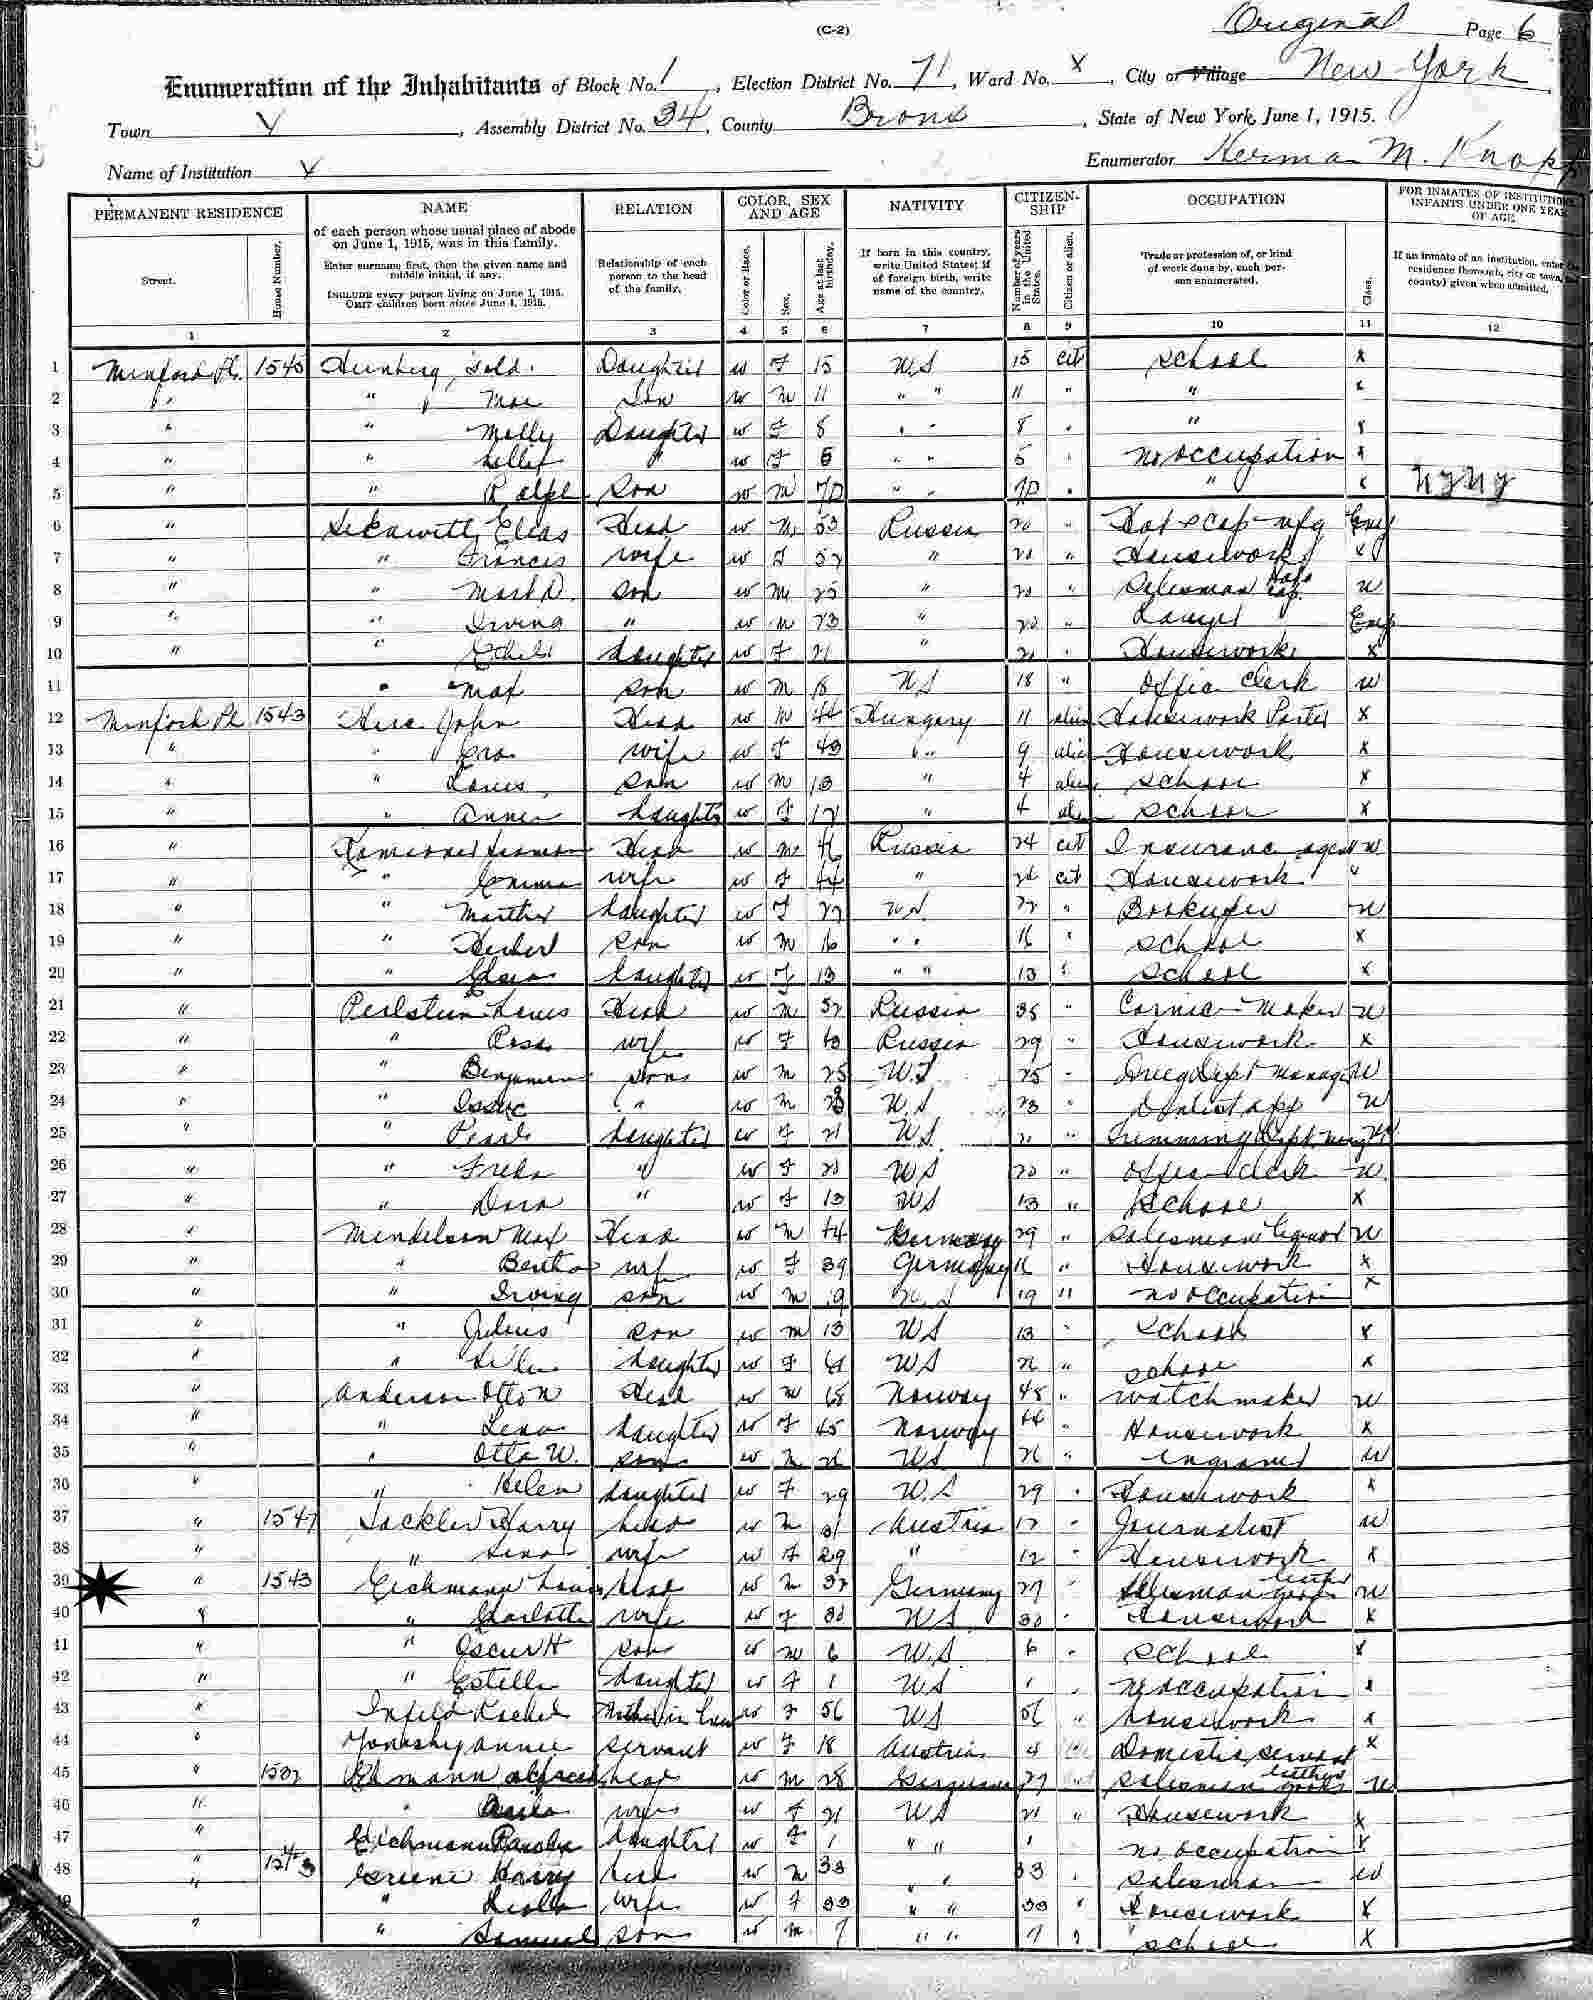 Original Page 6
(C-2)
Enumeration of the Inhabitants of Block No. 1, Election District No. 71, Ward No. x, City or Village New York
Town, Assembly District No. 34, County Bronx, State of New York, June 1, 1915.
Name of Institution Enumerator Herman M. Knopf
PERMANENT RESIDENCE NAME RELATION COLOR, SEX AND AGE NATIVITY CITIZEN-SHIP OCCUPATION FOR INMATES OF INSTITUTIONS, INFANTS UNDER ONE YEAR OF AGE.
Street. House Number. of each person whose usual place of abode on June 1, 1915, was in this family. Enter surname first, then the given name and middle initial, if any. INCLUDE every person living on June 1, 1915. OMIT children born since June 1, 1915. Relationship of each person to the head of the family. Color or Race. Sex. Age at last birthday. If born in this country, write United States; if of foreign birth, write name of the country. Number of years in the United States. Citizen or alien. Trade or profession of, or kind of work done by, each person enumerated. Class. If an inmate of an institution, enter residence (borough, city or town, county) given when admitted.
1 2 3 4 5 6 7 8 9 10 11 12
1 Minford Pl. 1545 Daughter w F 15 U.S 15 cit school x
2 " " Moe Son w M 11 " " 11 " " x
3 " " Molly Daughter w F 8 " " 8 " "
4 " " w F 5 " " 5 " no occupation x
5 " " Ralph Son w M " " " x NYNY
6 " Elias Head w M 53 Russia 20 " Hat & Cap mfg Emp
7 " " Francis wife w F 52 " 20 " Housework x
8 " " Mark D. son w M 25 " 20 " Salesman w
9 " " Irving " w M 23 " 20 " Lawyer Emp
10 " " Ethel daughter w F 21 " 21 " Housework x
11 " Max son w M 18 US 18 " Office Clerk w
12 Minford Pl 1543 John Head w M 44 Hungary 11 alien Porter x
13 " " wife w F 43 " " 9 alien Housework x
14 " " Louis son w M 13 " 4 alien school x
15 " " Annie daughter w F 12 " 4 alien school x
16 " Head w M 46 Russia 24 cit Insurance agent w
17 " " Emma wife w F 44 " 26 cit Housework "
18 " " Martha daughter w F 22 U.S. 22 " Bookkeeper w
19 " " Herbert son w M 16 " " 16 " school x
20 " " Elsie daughter w F 13 " " 13 " school x
21 " Perlstein Louis Head w M 52 Russia 35 " Cornice Maker w
22 " " Rose wife w F Russia 29 " Housework x
23 " " Benjamin son w M 25 U.S 25 " Drug Dept Manager w
24 " " Isaac " w M 23 U.S 23 " Dentist app w
25 " " Pearl daughter w F 21 U.S. 21 " Trimming Dept
26 " " Freda " w F 20 U S 20 " Office Clerk w
27 " " Dora " w F 13 U S 13 " school x
28 " Mendelson Max Head w M 44 Germany 29 " Salesman Liquor w
29 " " Bertha wife w F 39 Germany " Housework x
30 " " Irving son w M 19 U.S 19 " no occupation x
31 " " Julius son w M 13 U S 13 " School x
32 " " daughter w F U S " school x
33 " Anderson Otto N Head w M 68 Norway 48 " Watchmaker w
34 " " Lena daughter w F 45 Norway 44 " Housework x
35 " " Otto W. son w M 26 U S 26 " engraver w
36 " " Helen daughter w F 29 U.S 29 " Housework x
37 " 1547 Sackler Harry head w M 31 Austria 12 " Journalist w
38 " " wife w F 29 " 12 " Housework x
39 " 1543 Eichmann Louis head w M 32 Germany 27 " Salesman leather goods w
40 " " Charlotte wife w F 30 U S. 30 " Housework x
41 " " Oscar H son w M 6 U.S. 6 " school x
42 " " Estelle daughter w F 1 U S 1 " no occupation x
43 " Infeld Rachel Mother in law w F 56 U S 56 " housework x
44 " Annie servant w F 18 Austria 4 Domestic servant x
45 " alfred head w M 28 27 Salesman leather goods w
46 " " wife w F 21 U S 21 " Housework x
47 " Eichmann daughter w F 1 " " 1 no occupation x
48 " 1543 Greene Harry head w M 33 " " 33 " salesman w
49 " " wife w F 33 " " 33 " Housework x
" " Samuel son w M 7 " " 7 " school x